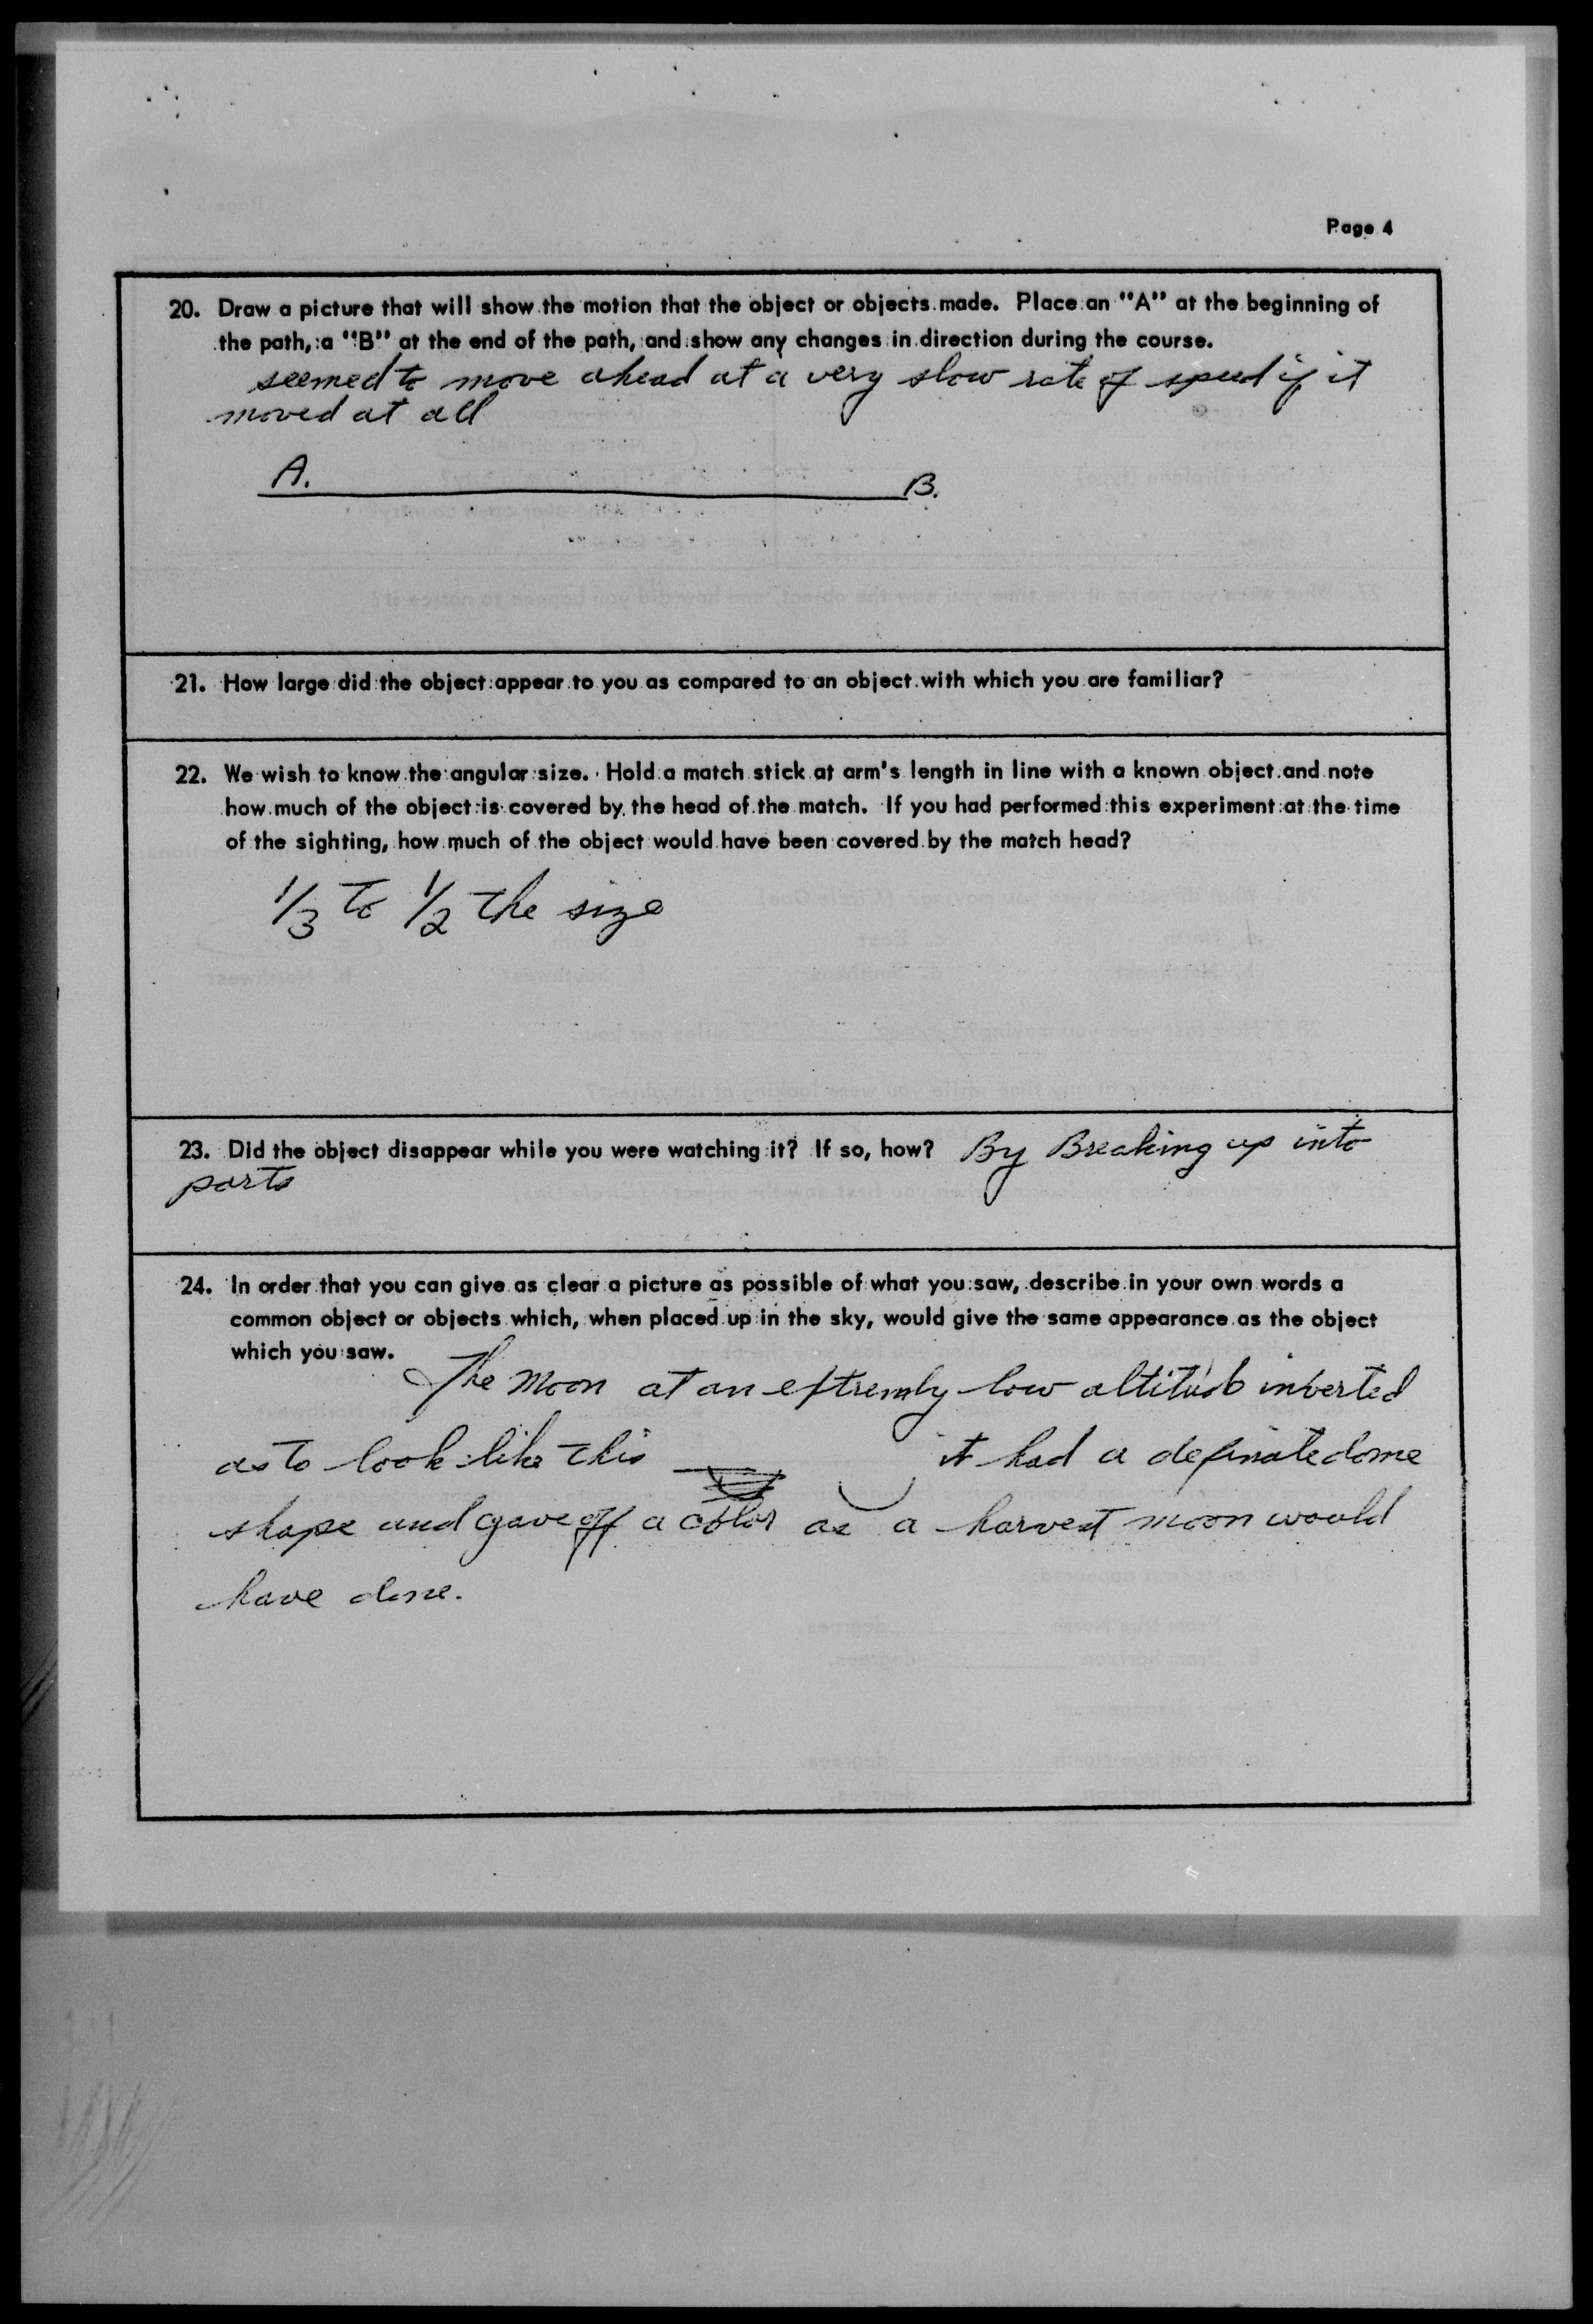 Page 4
20. Draw a picture that will show the motion that the object or objects made. Place an "A" at the beginning of
the path, a "B" at the end of the path, and show any changes in direction during the course.
seemed to move ahead at a very slow rate of speed if it
moved at all
A. B.
21. How large did the object appear to you as compared to an object with which you are familiar?
22. We wish to know the angular size. Hold a match stick at arm's length in line with a known object and note
how much of the object is covered by the head of the match. If you had performed this experiment at the time
of the sighting, how much of the object would have been covered by the match head?
1/3 to 1/2 the size
23. Did the object disappear while you were watching it? If so, how? By Breaking up into
parts
24. In order that you can give as clear a picture as possible of what you saw, describe in your own words a
common object or objects which, when placed up in the sky, would give the same appearance as the object
which you saw.
The Moon at an extremly low altitude inverted
as to look like this it had a definate dome
shape and gave off a color as a harvest moon would
have done.